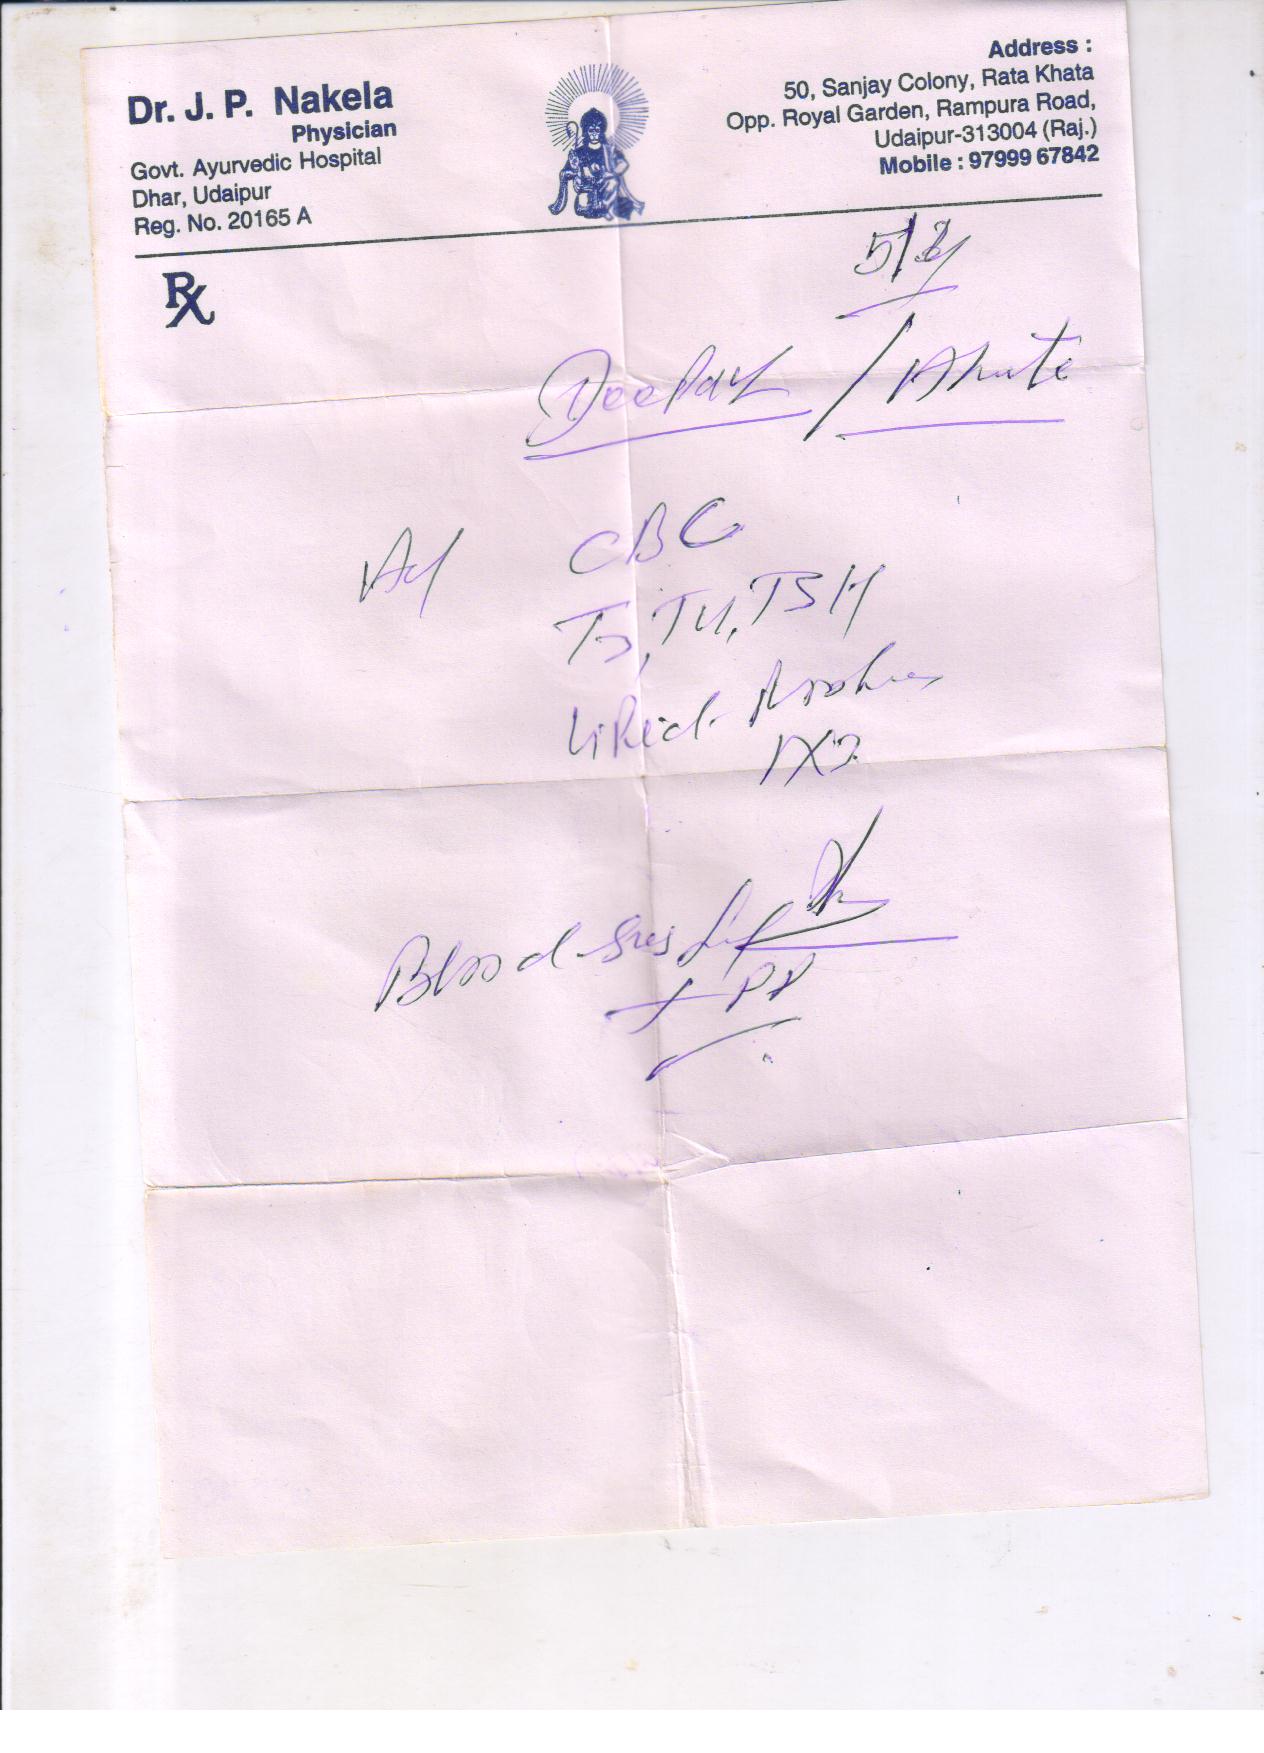 Dr. J. P. Nakela
Physician
Govt. Ayurvedic Hospital
Dhar, Udaipur
Reg. No. 20165 A
Address :
50, Sanjay Colony, Rata Khata
Opp. Royal Garden, Rampura Road,
Udaipur-313004 (Raj.)
Mobile : 97999 67842
Rx
Deepak /
CBC
T3, T4, TSH
Lipid
Blood
+ PP